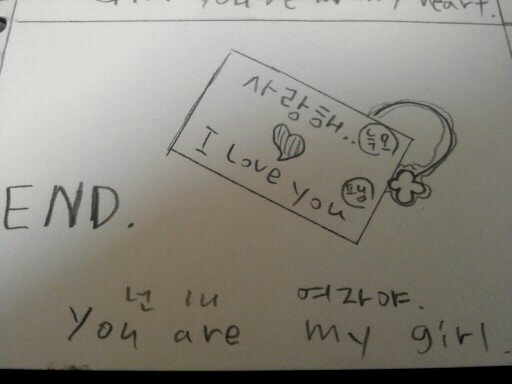 you're in my heart.
사랑해..
I Love You
END.
넌 내 여자야.
You are my girl.